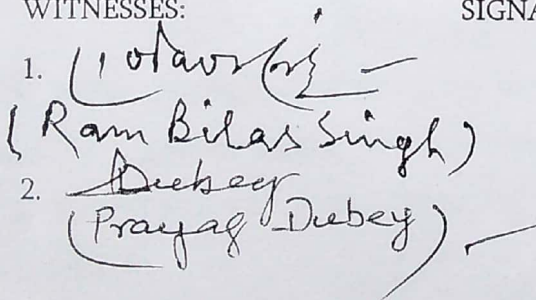 WITNESSES: SIGNA
1.
(Ram Bilas Singh)
2. Dubey
(Prayag Dubey)